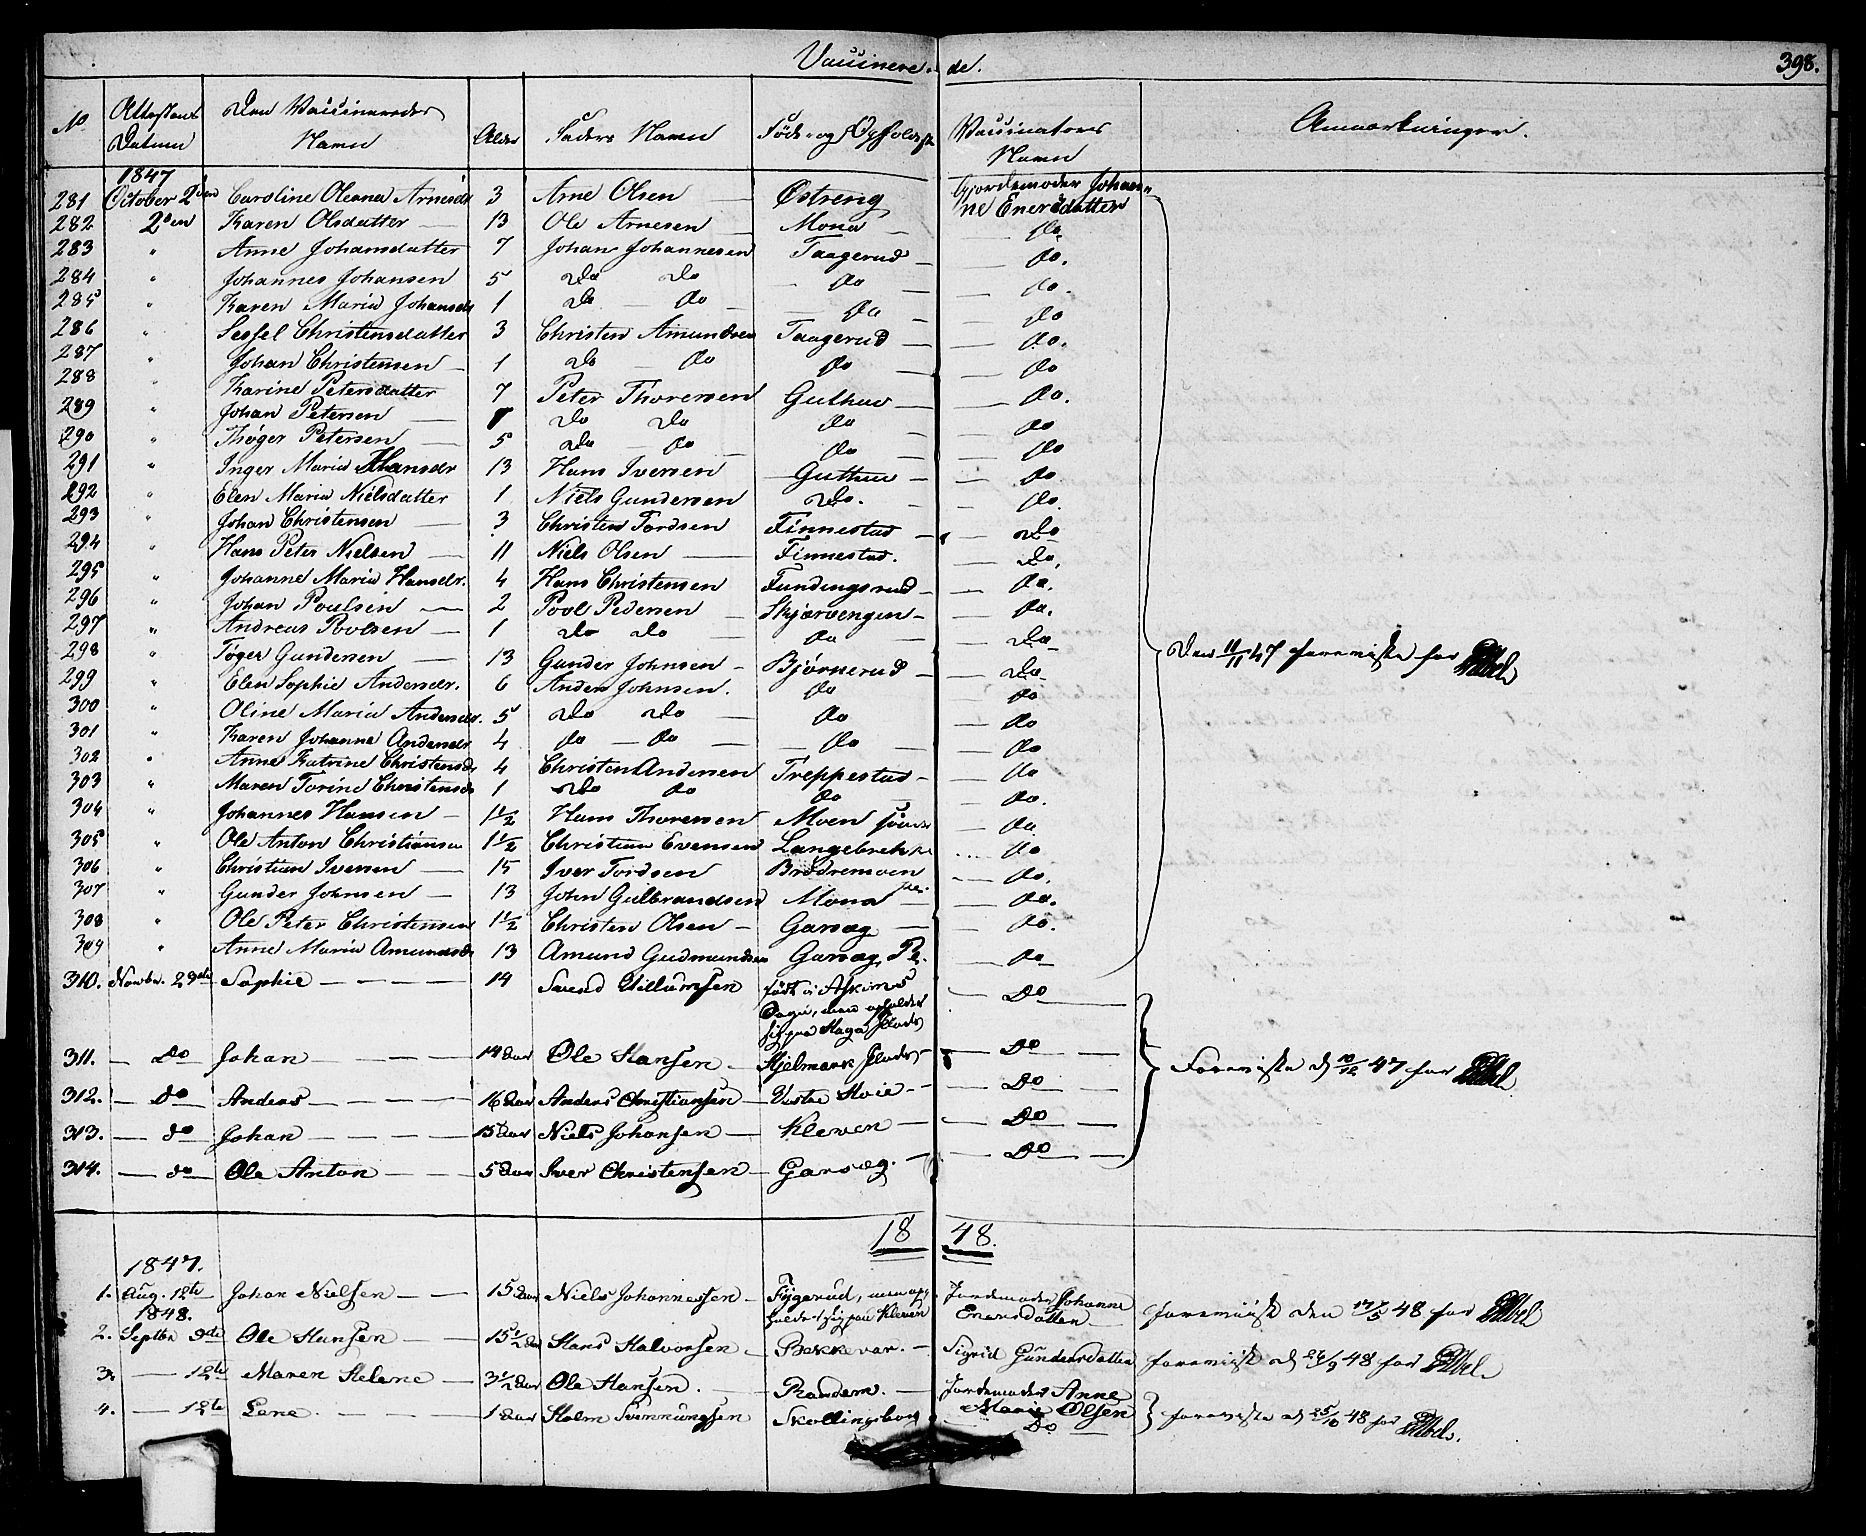 Vaccinere- de. 398.
No Attestens Datum Den Vaccineredes Navn Alder Faders Navn Føde- og Opholdsst Vaccinators Navn Anmærkninger.
1847
281 October 2den Caroline Oleana Arnesdr 3 Arne Olsen Østreng Gjordemoder Johan-
ne Enersdatter
282 2den Karen Olsdatter 13 Ole Arnesen Mona do
283 " Anne Johansdatter 7 Johan Johannesen Taagerud do.
284 " Johannes Johansen 5 Do Do do do.
285 " Karen Maria Johansdr 1 Do do do do
286 " Sessel Christensdatter 3 Christen Amundsen Taagerud do.
287 " Johan Christensen 1 Do do do do
288 " Karine Petersdatter 7 Peter Thoresen Guthus do.
289 " Johan Petersen Do Do do do
290 " Thøger Petersen 5 Do do do do
291 " Inger Maria Hansdr 13 Hans Iversen Guthus do
292 " Elen Maria Nielsdatter 1 Niels Gundersen Do. do.
293 " Johan Christensen 3 Christen Tordsen Finnestad Do
294 " Hans Peter Nielsen 11 Niels Olsen Finnestad. Do.
295 " Johanne Maria Hansdr. 4 Hans Christensen Fundingsrud do.
296 " Johan Poulsen 2 Povl Pedersen Skjærvengen do.
297 " Andreas Povlsen 1 Do Do do Do
298 " Tøger Gundersen 13 Gunder Johnsen Bjørnerud Do
Den 11/11 47 foreviste for PAbel
299 " Elen Sophie Andersdr. 6 Anders Johnsen. do do
300 " Oline Maria Andersdr. 5 Do Do do do
301 " Karen Johanne Andersdr 4 do do do do
302 " Anne Katrine Christensdr 4 Christen Andersen Treppestad do
303 " Maren Torine Christensdr 1 Do do do do.
304 " Johannes Hansen 1 1/2 Hans Thoresen Moen do
305 " Ole Anton Christiansen 1 1/2 Christian Evensen Langebrekke do
306 " Christian Iversen 15 Iver Tordsen Brødremoen do.
307 " Gunder Johnsen 13 John Gulbrandsen Mona do.
308 " Ole Peter Christensen 1 1/2 Christen Olsen Garsæg do.
309 " Anne Maria Amundsdr 13 Amund Gudmundsen Garsæg Pl. do
310. Novbr. 29de Sophie 14 Svend Willumsen født i Askims
Sogn, men opholder
sig paa Haga Plads Do
311. Do Johan 14 Aar Ole Hansen Hjelmark Plads Do
Foreviste d 10/12 47 for PAbel
312. Do Anders 16 Aar Anders Christiansen Vestre Hoie Do
313. do Johan 15 Aar Niels Johansen Kleven Do
314. do Ole Anton 5 Aar Iver Christensen Garsæg. Do
18 48.
1847.
1. Aug. 12te Johan Nielsen 15 Aar Niels Johannessen Fygerud, men op-
holder sig paa Kleven Jordemoder Johanne
Enersdatter foreviist den 17/5 48 for PAbel
1848.
2. Septbr 9de Ole Hansen 15 1/2 Aar Hans Halvorsen Bekkevar. Sigrid Gundersdatter foreviist d 24/9 48 for PAbel
3. 12te Maren Helene 3 1/2 Aar Ole Hansen. Randem. Jordemoder Anne
Marie Olsen
4. 12te Lene. 1 Aar Holm Svennungsen Skollingsborg Do foreviste d 25/10 48 for PAbel.